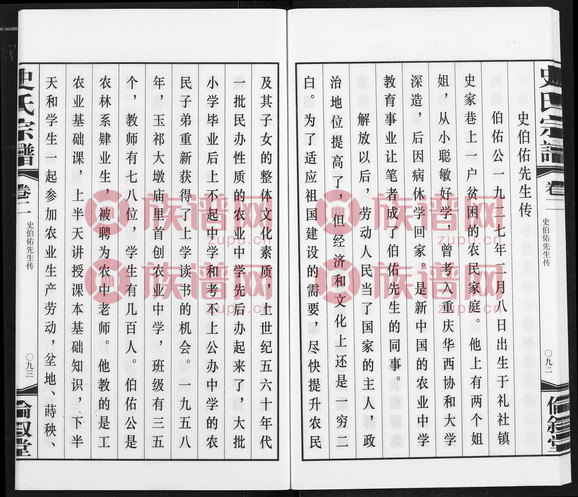 史氏宗譜
卷二
史伯佑先生传
〇九二
倫敘堂
史伯佑先生传
伯佑公一九二七年一月八日出生于礼社镇
史家巷上一户贫困的农民家庭。他上有两个姐
姐，从小聪敏好学，曾考入重庆华西协和大学
深造，后因病休学回家，是新中国的农业中学
教育事业让笔者成了伯佑先生的同事。
解放以后，劳动人民当了国家的主人，政
治地位提高了，但经济和文化上还是一穷二
白。为了适应祖国建设的需要，尽快提升农民
及其子女的整体文化素质，上世纪五六十年代
一批民办性质的农业中学先后办起来了，大批
小学毕业后上不起中学和考不上公办中学的农
民子弟重新获得了上学读书的机会。一九五八
年，玉祁大墩庙里首创农业中学，班级有三五
个，教师有七八位，学生有几百人。伯佑公是
农林系肄业生，被聘为农中老师。他教的是工
农业基础课，上半天讲授课本基础知识，下半
天和学生一起参加农业生产劳动，坌地、莳秧、
史氏宗譜
卷二
史伯佑先生传
〇九三
倫敘堂
族谱网
zupu.cn
族谱网
zupu.cn
族谱网
zupu.cn
族谱网
zupu.cn